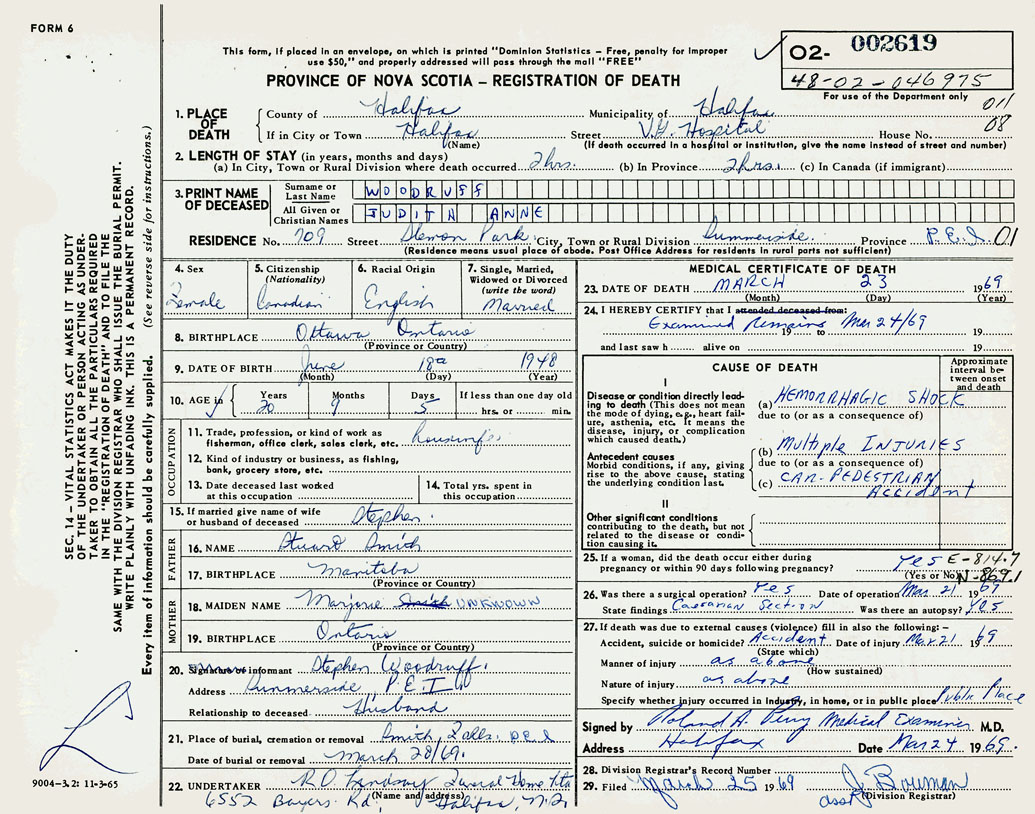 FORM 6
This form, if placed in an envelope, on which is printed "Dominion Statistics – Free, penalty for improper
use $50," and properly addressed will pass through the mail "FREE"
PROVINCE OF NOVA SCOTIA – REGISTRATION OF DEATH
O2- 002619
48-02-046975
For use of the Department only
011
08
SEC. 14 – VITAL STATISTICS ACT MAKES IT THE DUTY
OF THE UNDERTAKER OR PERSON ACTING AS UNDER-
TAKER TO OBTAIN ALL THE PARTICULARS REQUIRED
IN THE "REGISTRATION OF DEATH" AND TO FILE THE
SAME WITH THE DIVISION REGISTRAR WHO SHALL ISSUE THE BURIAL PERMIT.
WRITE PLAINLY WITH UNFADING INK. THIS IS A PERMANENT RECORD.
Every item of information should be carefully supplied. (See reverse side for instructions.)
1. PLACE OF DEATH
County of Halifax Municipality of Halifax
If in City or Town Halifax Street V.G. Hospital House No.
(Name) (If death occurred in a hospital or institution, give the name instead of street and number)
2. LENGTH OF STAY (in years, months and days)
(a) In City, Town or Rural Division where death occurred 2 hrs. (b) In Province 2 hrs. (c) In Canada (if immigrant)
3. PRINT NAME OF DECEASED
Surname or Last Name WOODRUFF
All Given or Christian Names JUDITH ANNE
RESIDENCE No. 709 Street Slemon Park City, Town or Rural Division Summerside Province P.E.I. 01
(Residence means usual place of abode. Post Office Address for residents in rural parts not sufficient)
4. Sex Female
5. Citizenship (Nationality) Canadian
6. Racial Origin English
7. Single, Married, Widowed or Divorced (write the word) Married
8. BIRTHPLACE Ottawa Ontario
(Province or Country)
9. DATE OF BIRTH June 18 1948
(Month) (Day) (Year)
10. AGE in Years 20 Months 9 Days 5 If less than one day old hrs. or min.
OCCUPATION
11. Trade, profession, or kind of work as
fisherman, office clerk, sales clerk, etc.
12. Kind of industry or business, as fishing,
bank, grocery store, etc.
13. Date deceased last worked
at this occupation
14. Total yrs. spent in
this occupation
15. If married give name of wife
or husband of deceased Stephen
FATHER
16. NAME Stuart Smith
17. BIRTHPLACE Manitoba
(Province or Country)
MOTHER
18. MAIDEN NAME Marjorie Smith UNKNOWN
19. BIRTHPLACE Ontario
(Province or Country)
20. Signature of informant Stephen Woodruff
Address Summerside, P.E.I.
Relationship to deceased Husband
21. Place of burial, cremation or removal P.E.I
Date of burial or removal March 28/69.
22. UNDERTAKER R D Lindsay Funeral Home Ltd
(Name and address)
6552 Bayers Rd, Halifax, N.S.
9004-3.2: 11-3-65
MEDICAL CERTIFICATE OF DEATH
23. DATE OF DEATH MARCH 23 1969
(Month) (Day) (Year)
24. I HEREBY CERTIFY that I attended deceased from:
Examined Remains 19 to Mar 24/69 19
and last saw h alive on 19
CAUSE OF DEATH
Approximate interval between onset and death
I
Disease or condition directly lead-
ing to death (This does not mean
the mode of dying, e.g., heart fail-
ure, asthenia, etc. It means the
disease, injury, or complication
which caused death.)
(a) HEMORRHAGIC SHOCK
due to (or as a consequence of)
Antecedent causes
Morbid conditions, if any, giving
rise to the above cause, stating
the underlying condition last.
(b) Multiple INJURIES
due to (or as a consequence of)
(c) CAR-PEDESTRIAN
ACCIDENT
II
Other significant conditions
contributing to the death, but not
related to the disease or condi-
tion causing it.
25. If a woman, did the death occur either during
pregnancy or within 90 days following pregnancy? Yes E-814.7
(Yes or No) N-869.1
26. Was there a surgical operation? Yes Date of operation Mar 21 1969
State findings Caesarian Section Was there an autopsy? Yes
27. If death was due to external causes (violence) fill in also the following: –
Accident, suicide or homicide? Accident Date of injury Mar 21 1969
(State which)
Manner of injury as above
(How sustained)
Nature of injury as above
Specify whether injury occurred in industry, in home, or in public place Public Place
Signed by Roland A. Perry Medical Examiner M.D.
Address Halifax Date Mar 24 1969.
28. Division Registrar's Record Number
29. Filed March 25 1969 J Bowman
asst (Division Registrar)